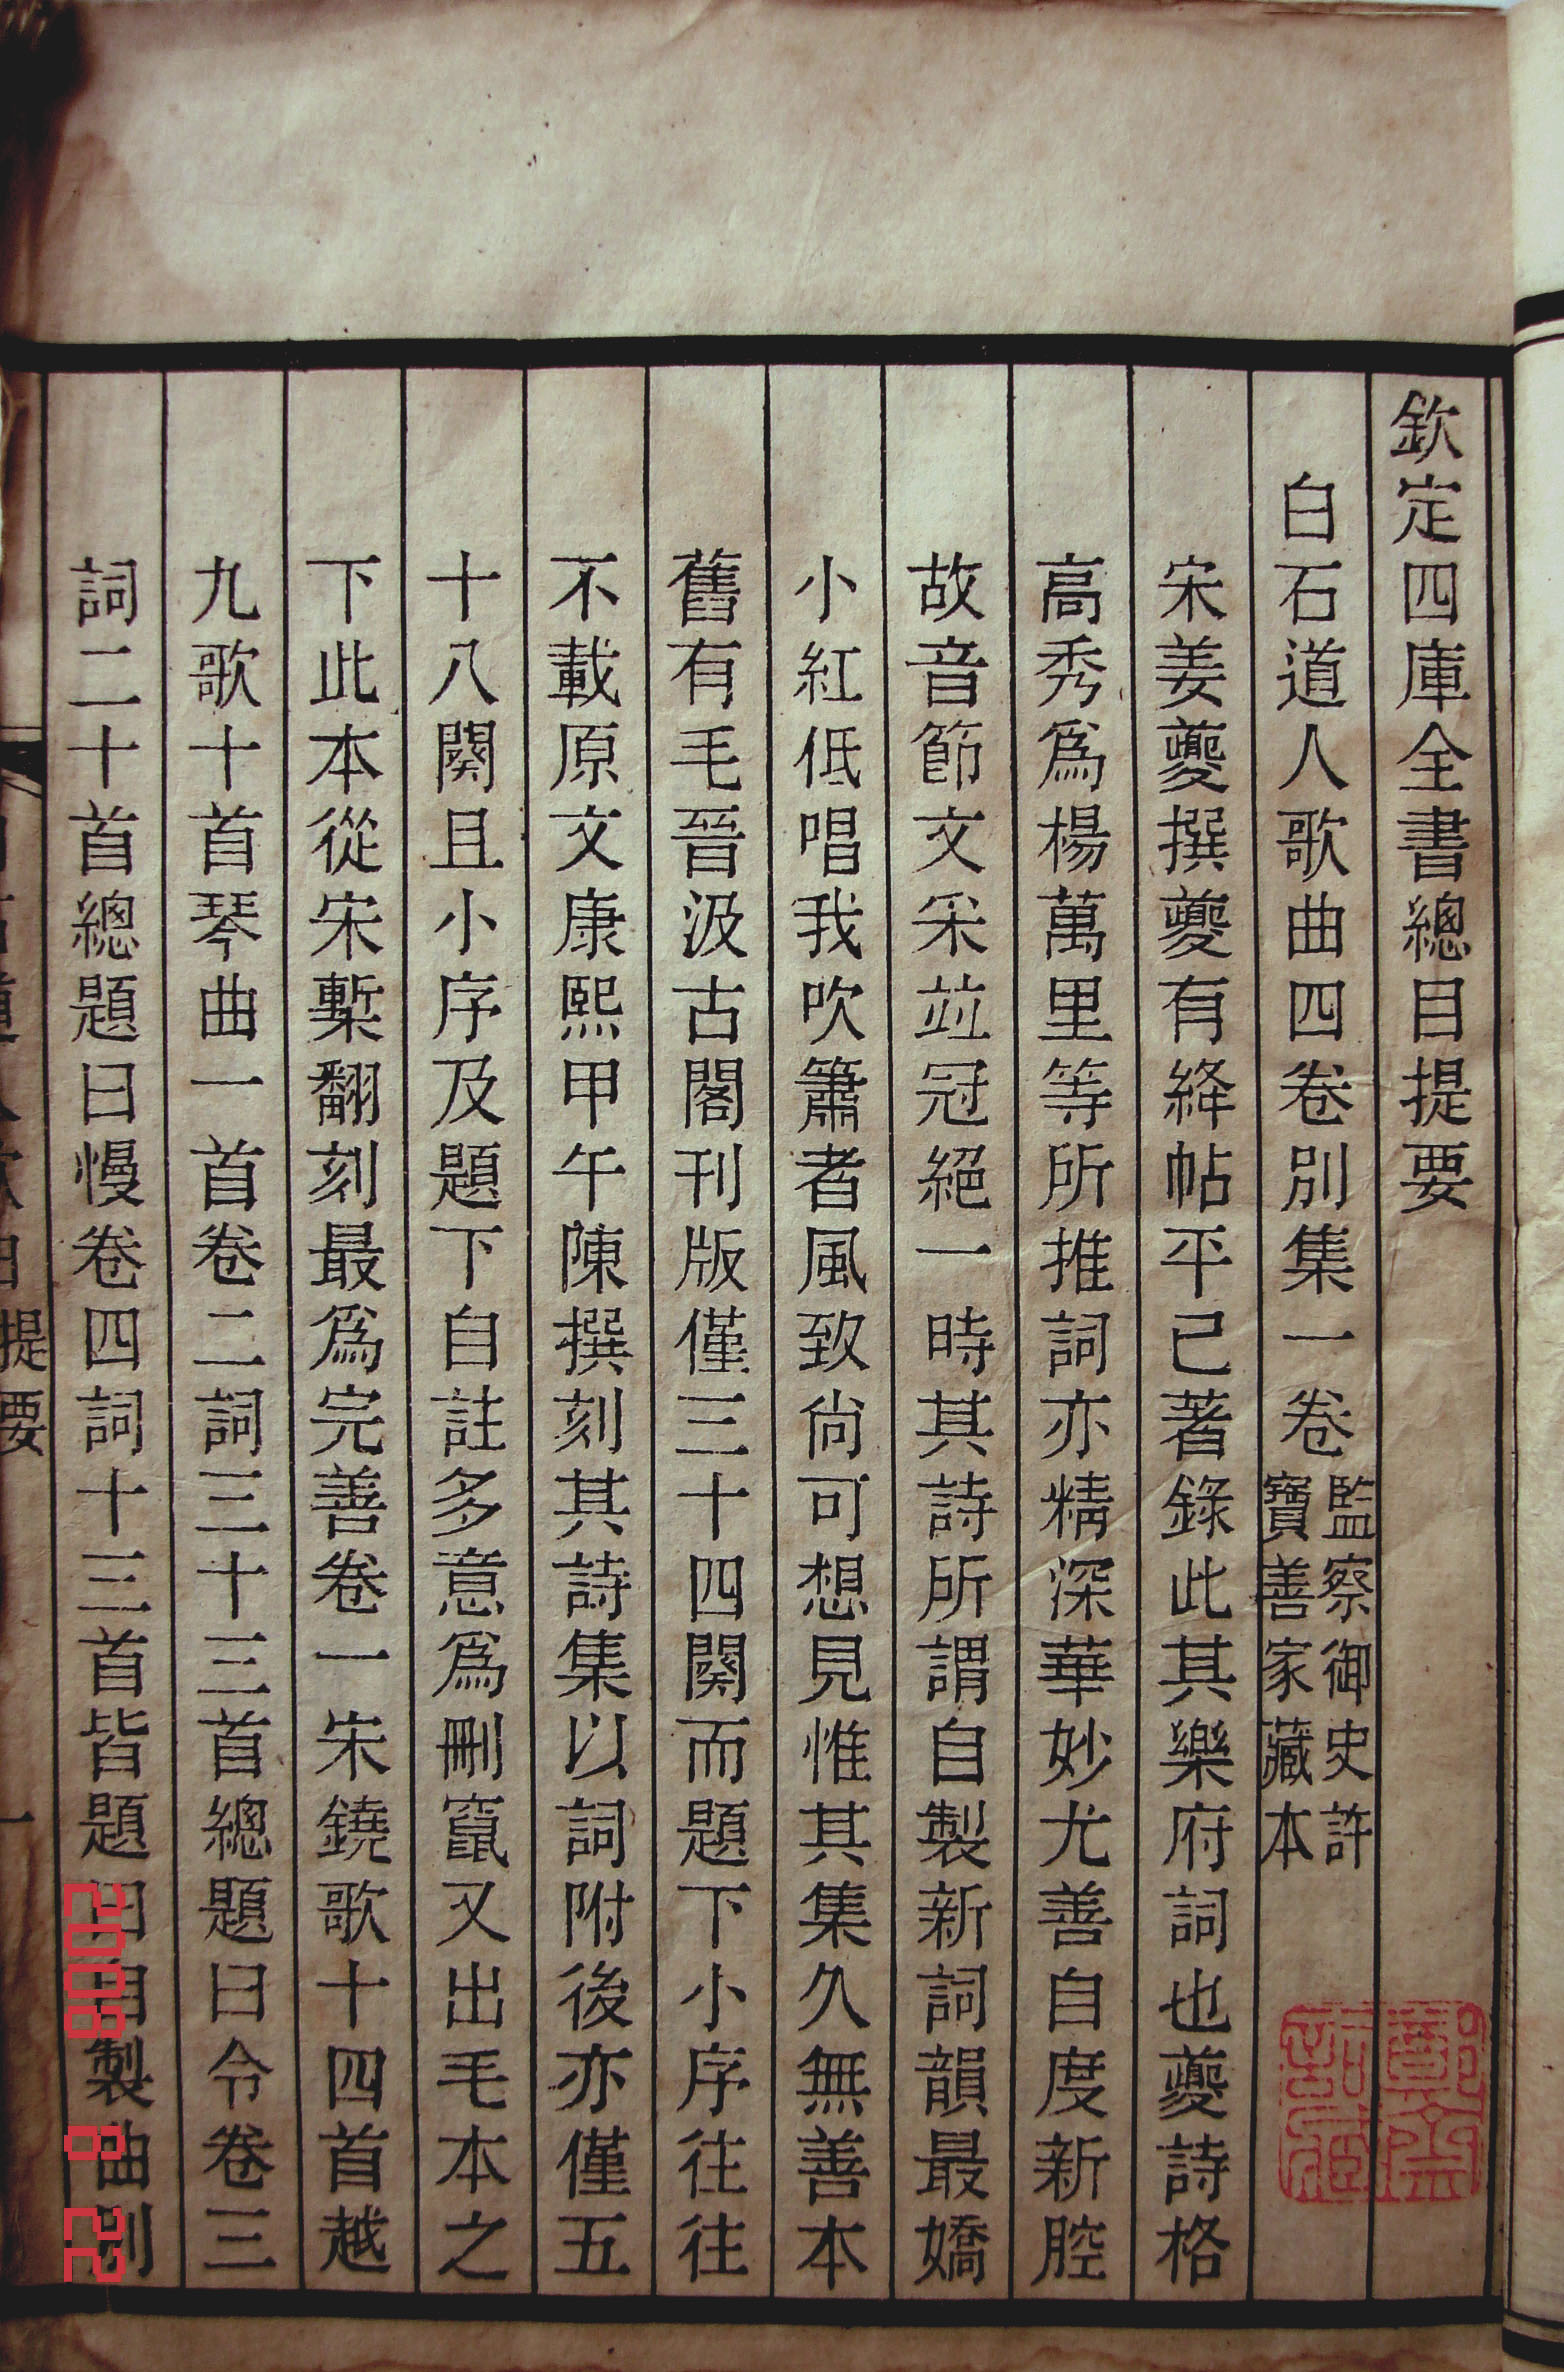 欽定四庫全書總目提要
白石道人歌曲四卷別集一卷
監察御史許
寶善家藏本
宋姜夔撰夔有絳帖平已著錄此其樂府詞也夔詩格
高秀爲楊萬里等所推詞亦精深華妙尤善自度新腔
故音節文采竝冠絕一時其詩所謂自製新詞韻最嬌
小紅低唱我吹簫者風致尙可想見惟其集久無善本
舊有毛晉汲古閣刊版僅三十四闋而題下小序往往
不載原文康熙甲午陳撰刻其詩集以詞附後亦僅五
十八闋且小序及題下自註多意爲刪竄又出毛本之
下此本從宋槧翻刻最爲完善卷一宋鐃歌十四首越
九歌十首琴曲一首卷二詞三十三首總題曰令卷三
詞二十首總題曰慢卷四詞十三首皆題曰自製曲別
提要
一
2008 8 22